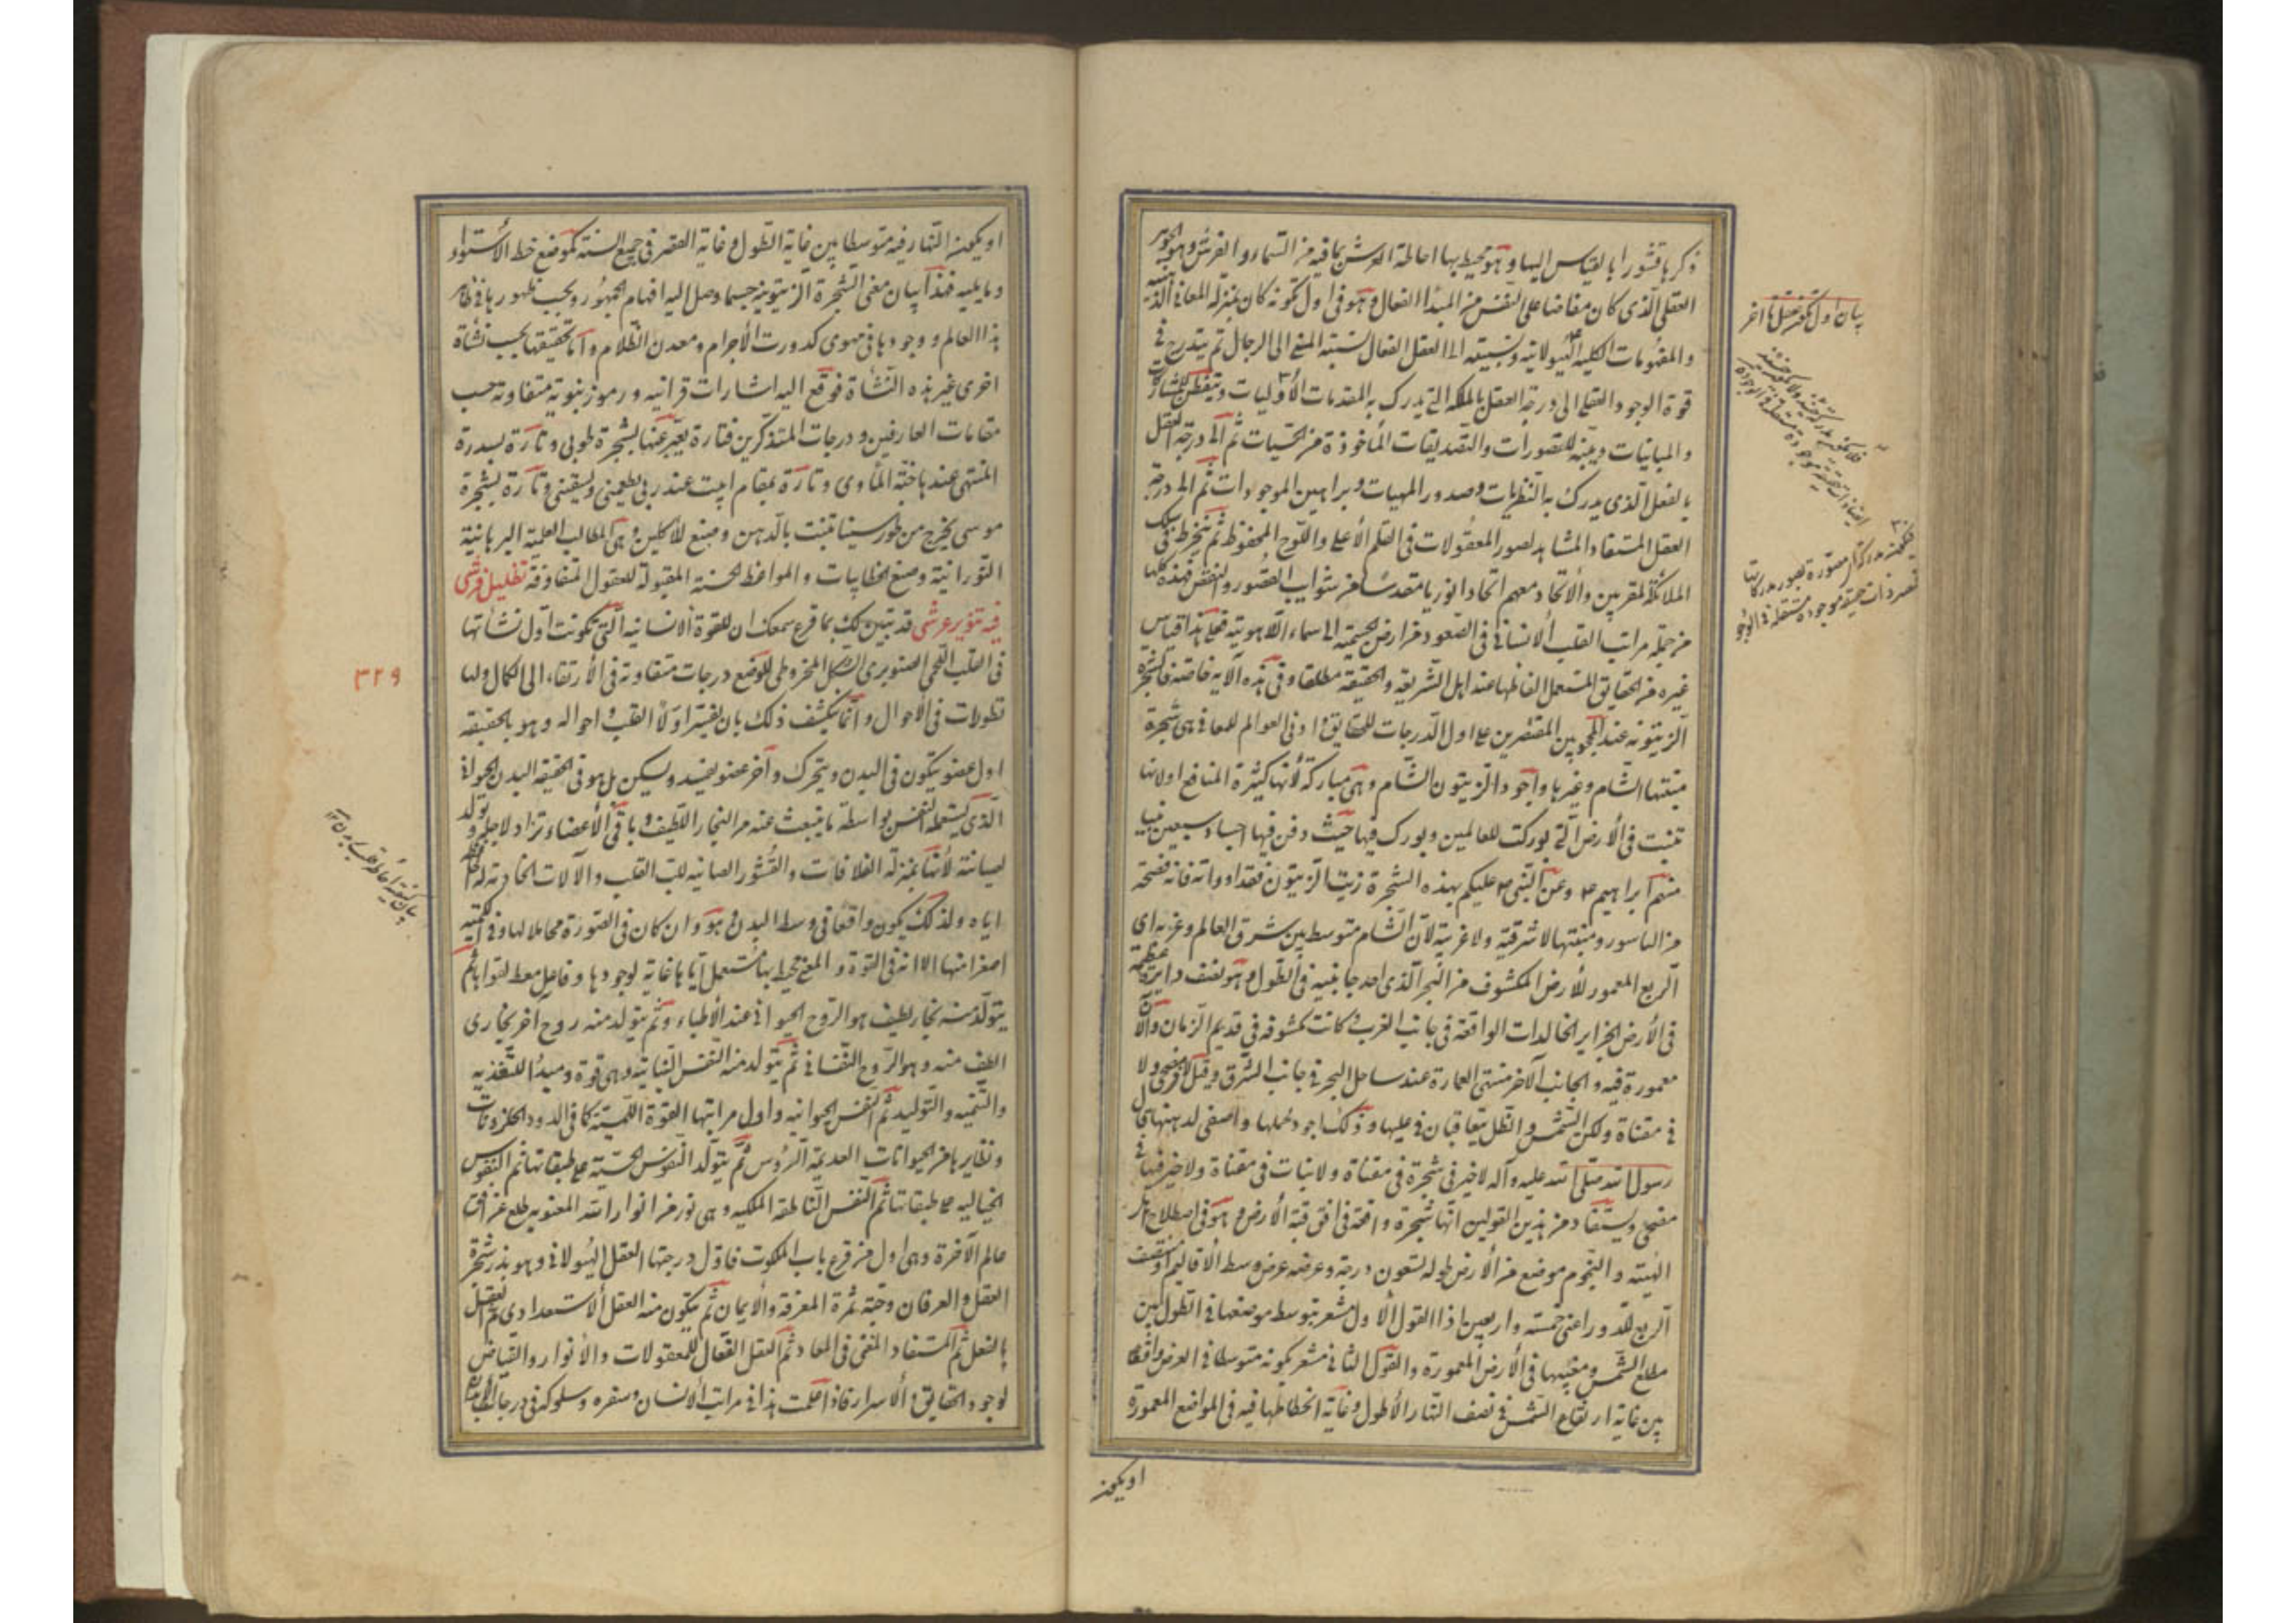 ذكرها قشورا بالقياس اليها وهو محيط بها احاطة العرش بما فيه من السماء والفرش وهو الجوهر
العقلي الذي كان مفاضا على النفس من المبدا الفعال وهو في اول تكونه كان بمنزلة المعاني الذهنية
والمفهومات الكلية الهيولانية ونسبته الى العقل الفعال نسبة المني الى الرجال ثم يتدرج في
قوة الوجود العقلي الى درجة العقل بالملكة التي يدرك به المقدمات الأوليات ويتفطن للمشاركات
والمباينات وينبه للتصورات والتصديقات المأخوذة من الحسيات ثم الى درجة العقل
بالفعل الذي يدرك به النظريات وصدور المهيات وبراهين الموجودات ثم الى درجة
العقل المستفاد المشاهد لصور المعقولات في القلم الأعلى واللوح المحفوظ ثم ينخرط في سلك
الملائكة المقربين والاتحاد معهم اتحادا نوريا مقدسا عن شوايب القصور والنقص فهذه كلها
من جملة مراتب القلب الانساني في الصعود من ارض الجسمية الى سماء اللاهوتية فعلى هذا قياس
غيره من الحقايق المستعمل الفاظها عند اهل الشريعة والحقيقة مطلقا وفي هذه الآية خاصة فالشجرة
الزيتونة عند المحجوبين المقتصرين على اول الدرجات للحقايق وادنى العوالم للمعاني هي شجرة
منبتها الشام وغيرها وأجود الزيتون الشام وهي مباركة لأنها كثيرة المنافع اولانها
تنبت في الأرض التي بوركت للعالمين وبورك فيها حيث دفن فيها اجساد سبعين نبيا
منهم ابراهيم ع وعن النبي ص عليكم بهذه الشجرة زيت الزيتون فتداووا به فانه مصحة
من الباسور ومنبتها لا شرقية ولا غربية لأن الشام متوسط بين شرق العالم وغربه اي
الربع المعمور للأرض المكشوف من البحر الذي احد جانبيه في الطول وهو نصف دايرة عظيمة
في الأرض الجزاير الخالدات الواقعة في جانب الغرب وكانت مكشوفة في قديم الزمان والآن
معمورة فيه والجانب الآخر منتهى العمارة عند ساحل البحر في جانب الشرق وقيل لا في مضحى ولا
في مقناة ولكن الشمس والظل يتعاقبان في عليها وذلك اجود لحملها واصفى لدهنها قال
رسول الله صلى الله عليه وآله لا خير في شجرة في مقناة ولا نبات في مقناة ولا خير فيهما في
مضحى ويستفاد من هذين القولين انها شجرة واقعة في افق قبة الأرض وهو في اصطلاح اهل
الهيئة والنجوم موضع من الأرض طوله تسعون درجة وعرضه عرض وسط الأقاليم او نصف
الربع للدور اعني خمسة واربعين اذ القول الأول مشعر بتوسط موضعها في الطول بين
مطلع الشمس ومغيبها في الأرض المعمورة والقول الثاني مشعر بكونه متوسطا في العرض واقعا
بين غاية ارتفاع الشمس في نصف النهار الأطول وغاية انحطاطها فيه في المواضع المعمورة
او يكون
او يكون النهار فيه متوسطا بين غاية الطول وغاية القصر في جميع السنة كموضع خط الأستواء
وما يليه فهذا بيان معنى الشجرة الزيتونية حسبما وصل اليه افهام الجمهور وبحسب ظهورها في ظاهر
هذا العالم ووجودها في مهوى كدورت الأجرام ومعدن الظلام وأما تحقيقها بحسب نشأة
اخرى غير هذه النشأة فوقع اليه اشارات قرانية ورموز نبوية متفاوتة حسب
مقامات العارفين ودرجات المتذكرين فتارة يعبر عنها بشجرة طوبى وتارة بسدرة
المنتهى عندها جنة المأوى وتارة بمقام ابيت عند ربي يطعمني ويسقيني وتارة بشجرة
موسى يخرج من طور سينا تنبت بالدهن وصبغ للأكلين وهي المطالب العلمية البرهانية
النورانية وصبغ الخطابيات والمواعظ الحسنة المقبولة للعقول المتفاوتة تظليل فرشي
فيه تنوير عرشي قد تبين لك بما قرع سمعك ان للقوة الانسانية التي تكونت اول نشأتها
في القلب اللحمي الصنوبري الشكل المخروطي للوضع درجات متفاوتة في الأرتقاء الى الكمال ولها
تطورات في الاحوال وانما يكشف ذلك بان يفسر اولا القلب واحواله وهو بالحقيقة
اول عضو يتكون في البدن ويتحرك وآخر عضو يفسد ويسكن بل هو في الحقيقة البدن الحيواني
الذي يستعمله النفس بواسطة ما ينبعث عنه من البخار اللطيف وباقي الأعضاء تزاد لاجله وتولد
لصيانته لأنها بمنزلة الغلافات والقشور الصائنة للب القلب والآلات الخادمة له
اياه ولذلك يكون واقعا في وسط البدن وهو وان كان في الصورة محاملا لها وفي الكمية
اصغر منها الا انه في القوة والمعنى محيط بها مستعمل اياها غاية لوجودها وفاعل معط لقواها ثم
يتولد منه بخار لطيف هو الروح الحيواني عند الأطباء وثم يتولد منه روح اخر بخاري
الطف منه وهو الروح النفساني ثم يتولد منه النفس النباتية وهي قوة ومبدأ للتغذية
والتنمية والتوليد ثم النفس الحيوانية واول مراتبها القوة اللمسية كما في الدود والحلزونات
ونظايرها من الحيوانات العديمة الرؤس ثم يتولد النفوس الحسية على طبقاتها ثم النفوس
الخيالية على طبقاتها ثم النفس الناطقة الملكية وهي نور من انوار الله المعنوية طلع من افق
عالم الآخرة وهي اول من قرع باب الملكوت فاول درجتها العقل الهيولاني وهو بذر شجرة
العقل والعرفان وحبة ثمرة المعرفة والايمان ثم يتكون منه العقل الاستعدادي ثم العقل
بالفعل ثم المستفاد المغني في المعاد ثم العقل الفعال للمعقولات والأنوار والفياض
لوجود الحقايق والأسرار فاذا علمت هذا في مراتب الانسان وسفره وسلوكه في درجات
٣٢٩